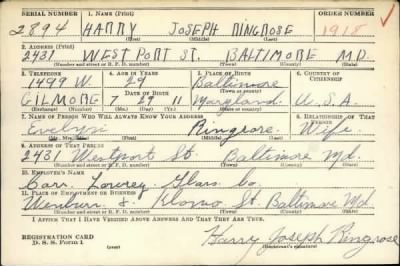 SERIAL NUMBER 1. NAME (Print) ORDER NUMBER
2894 HARRY JOSEPH RINGROSE 1918
(First) (Middle) (Last)
2. ADDRESS (Print)
2431 WESTPORT ST. BALTIMORE MD.
(Number and street or R. F. D. number) (Town) (County) (State)
3. TELEPHONE 4. AGE IN YEARS 5. PLACE OF BIRTH 6. COUNTRY OF CITIZENSHIP
1499 W. 29 Baltimore
DATE OF BIRTH (Town or county)
GILMORE 7 29 11 Maryland U.S.A.
(Exchange) (Number) (Mo.) (Day) (Yr.) (State or country)
7. NAME OF PERSON WHO WILL ALWAYS KNOW YOUR ADDRESS 8. RELATIONSHIP OF THAT PERSON
Evelyn Ringrose Wife
(Mr., Mrs., Miss) (First) (Middle) (Last)
9. ADDRESS OF THAT PERSON
2431 Westport St. Baltimore Md.
(Number and street or R. F. D. number) (Town) (County) (State)
10. EMPLOYER'S NAME
Carr, Lowrey, Glass Co.
11. PLACE OF EMPLOYMENT OR BUSINESS
St. Baltimore Md.
(Number and street or R. F. D. number) (Town) (County) (State)
I AFFIRM THAT I HAVE VERIFIED ABOVE ANSWERS AND THAT THEY ARE TRUE.
REGISTRATION CARD
D. S. S. Form 1 (over) Harry Joseph Ringrose
(Registrant's signature)